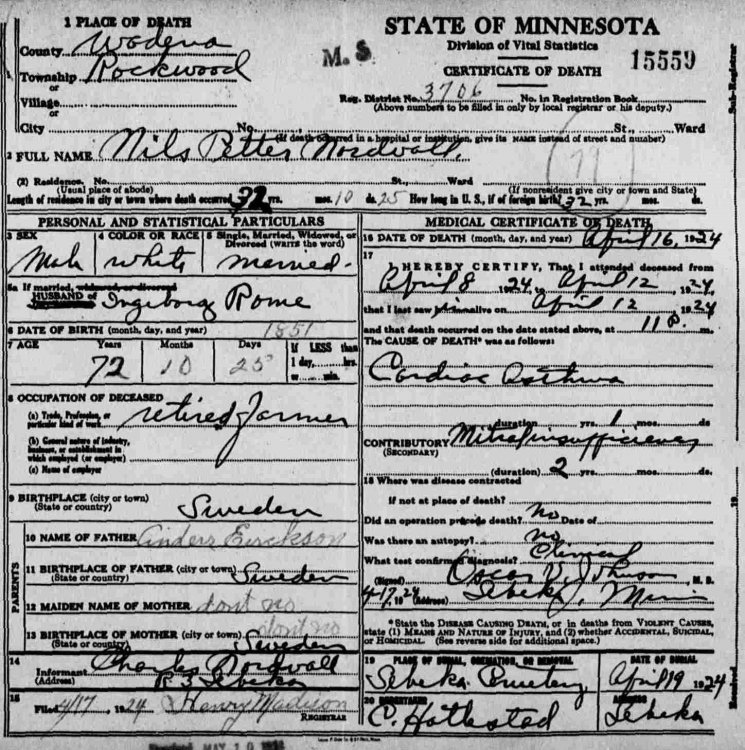 1 PLACE OF DEATH
County Wadena
Township Rockwood
or
Village
or
City
No. St., Ward
(If death occurred in a hospital or institution, give its NAME instead of street and number)
M. S.
STATE OF MINNESOTA
Division of Vital Statistics
CERTIFICATE OF DEATH
15559
Sub-Registrar
Reg. District No. 3706 No. in Registration Book
(Above numbers to be filled in only by local registrar or his deputy.)
2 FULL NAME Nils Petter Nordvall.
(2) Residence. No. St., Ward
(Usual place of abode) (If nonresident give city or town and State)
Length of residence in city or town where death occurred 32 yrs. mos. 10 ds. 25 How long in U. S., if of foreign birth? 32 yrs. mos. ds.
PERSONAL AND STATISTICAL PARTICULARS
3 SEX 4 COLOR OR RACE 5 Single, Married, Widowed, or Divorced (WRITE the word)
Male white married.
5a If married, widowed, or divorced
HUSBAND of Ingeborg Rome
6 DATE OF BIRTH (month, day, and year) 1851
7 AGE Years Months Days If LESS than
1 day, hrs.
or min.
72 10 25
8 OCCUPATION OF DECEASED
(a) Trade, Profession, or
particular kind of work retired farmer
(b) General nature of industry,
business, or establishment in
which employed (or employer)
(c) Name of employer
9 BIRTHPLACE (city or town)
(State or country) Sweden
PARENTS
10 NAME OF FATHER Anders Erickson
11 BIRTHPLACE OF FATHER (city or town)
(State or country) Sweden
12 MAIDEN NAME OF MOTHER dont no
13 BIRTHPLACE OF MOTHER (city or town) dont no
(State or country) Sweden
14
Informant Charles Nordvall
(Address) R 3 Sebeka
15
Filed 4/17, 1924 Henry Madison
REGISTRAR
MEDICAL CERTIFICATE OF DEATH
16 DATE OF DEATH (month, day, and year) April 16, 1924
17
I HEREBY CERTIFY, That I attended deceased from
April 8, 1924, to April 12, 1924,
that I last saw him alive on April 12, 1924
and that death occurred on the date stated above, at 11 P. m.
The CAUSE OF DEATH* was as follows:
Cardiac Asthma
(duration) 1 yrs. mos. ds.
CONTRIBUTORY Mitral insufficiency
(SECONDARY)
(duration) 2 yrs. mos. ds.
18 Where was disease contracted
if not at place of death?
Did an operation precede death? no Date of
Was there an autopsy? no
What test confirmed diagnosis? Clinical
(Signed) Oscar V. Johnson, M. D.
4-17, 1924 (Address) Sebeka, Minn
*State the DISEASE CAUSING DEATH, or in deaths from VIOLENT CAUSES,
state (1) MEANS AND NATURE OF INJURY, and (2) whether ACCIDENTAL, SUICIDAL,
or HOMICIDAL. (See reverse side for additional space.)
19 PLACE OF BURIAL, CREMATION, OR REMOVAL DATE OF BURIAL
Sebeka Cemetery April 19 1924
20 UNDERTAKER ADDRESS
Sebeka
MAY 10